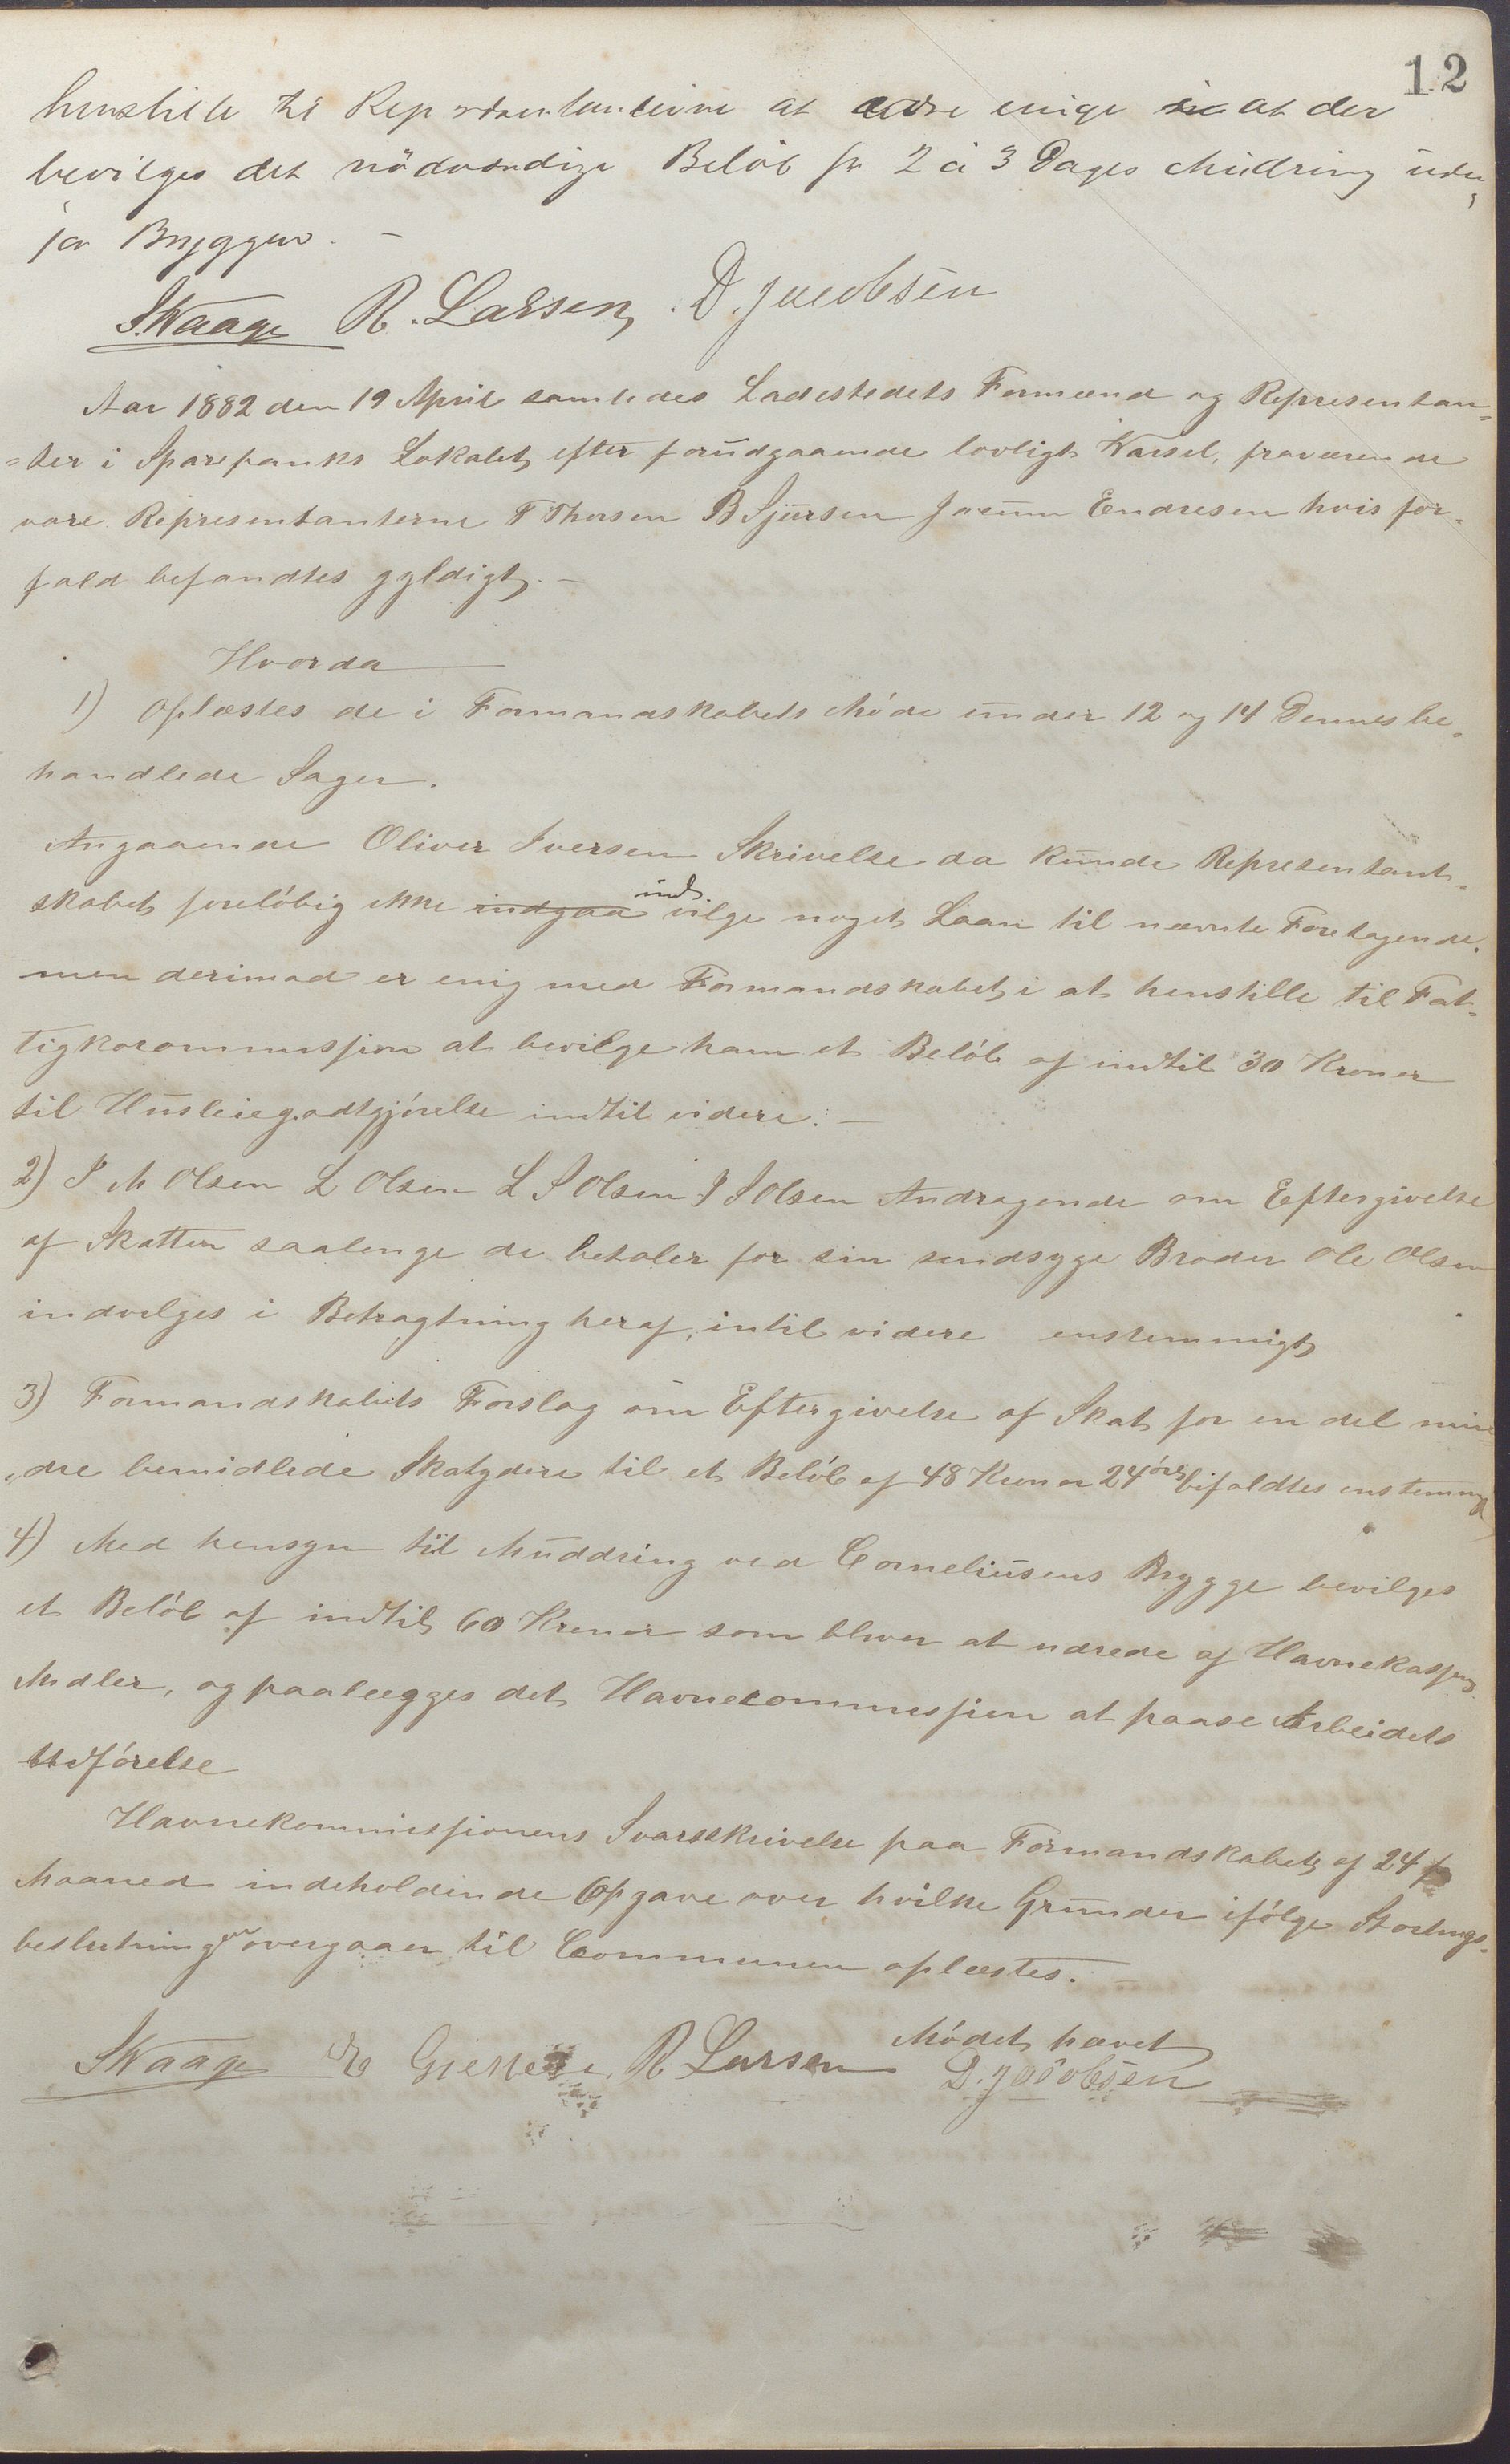 12
henstille til Repræsentanterne at være enige i at der
bevilges det nödvændige Belöb for 2 à 3 Dages Mudring uden,
for Bryggen. -
S. Waage R. Larsen, D. Jacobsen
Aar 1882 den 19 April samledes Ladestedets Formænd og Representan=
=ter i Sparepanks Lokalet efter forudgaaende lovligt Varsel, fraværende
vare Representanterne T Thorsen B Sjursen Jocum Endresen hvis for-
fald befandtes gyldigt. -
Hvorda
1) Oplæstes de i Formandskabets Möde under 12 og 14 Dennes be-
handlede Sager.
Angaaende Oliver Iversen Skrivelse da kunde Representant-
skabet forelöbig ikke indgaa ind vilge noget Laan til nævnte Foretagende.
men derimod er enig med Formandskabet i at henstille til Fat-
tigkorommissjion at bevilge ham et Belöb af indtil 30 Kroner
til Husleiegodtgjörelse indtil videre. -
2) P M Olsen L Olsen L S Olsen I S Olsen Andragende om Eftergivelse
af Skatten saalenge de betaler for sin sendsyge Broder Ole Olsen
indvelges i Betragtning heraf, intil videre enstemmigt
3) Formandskabets Forslag om Eftergivelse af Skat for en del min
-dre bemidlede Skatydere til et Belöb af 48 Kroner 24 öre bifaldtes enstemmigt
4) Med hensyn til Muddring ved Corneliusens Brygge bevilges
et Belöb af indtil 60 Kroner som bliver at udrede af Havnekassens
Midler, og paalægges det Havnecommissjien at paase Arbeidets
Udförelse
Havnekommissjionens Svarskrivelse paa Formandskabets af 24 f
Maaned indeholdende Opgave over hvilke Grunder ifölge Stortings-
beslutningen overgaaer til Communen oplæstes. -
Mödet hævet
S Waage E Gjerde R Larsen D. Jacobsen